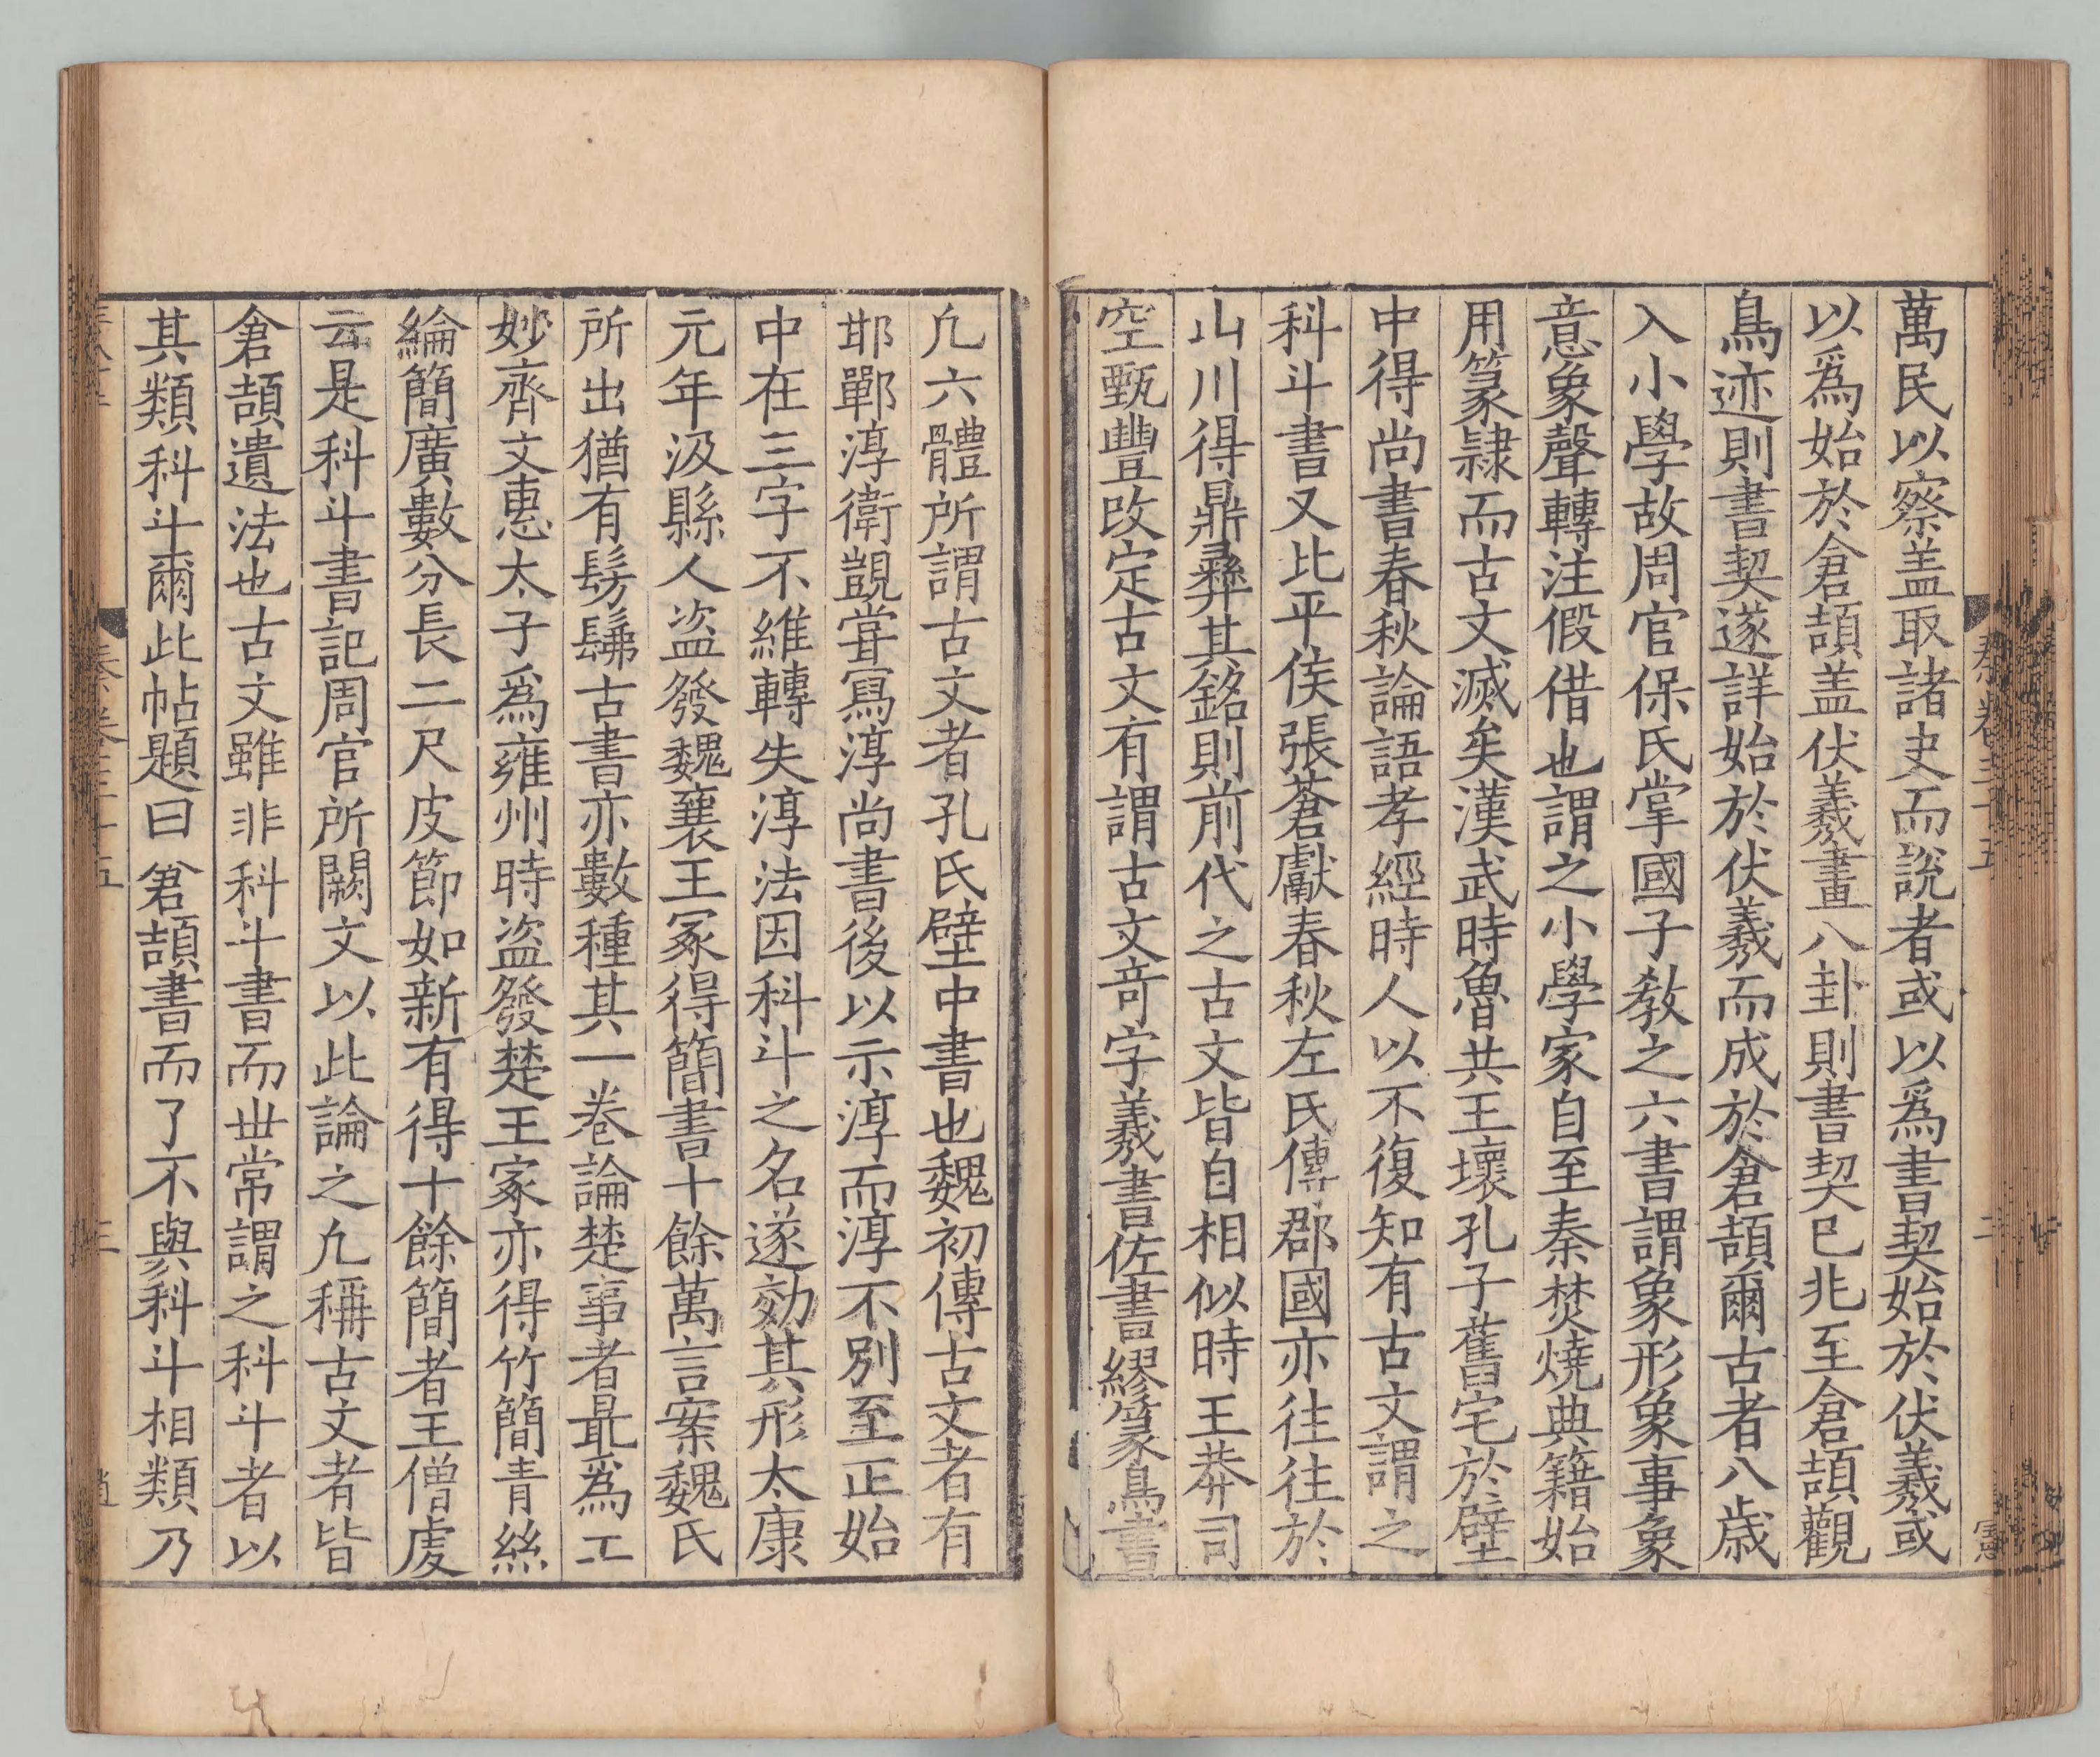 萬民以察盖取諸夬而說者或以爲書契始於伏羲或
以爲始於倉頡盖伏羲畫八卦則書契已兆至倉頡觀
鳥迹則書契遂詳始於伏羲而成於倉頡爾古者八歲
入小學故周官保氏掌國子教之六書謂象形象事象
意象聲轉注假借也謂之小學家自至秦焚燒典籍始
用篆隷而古文滅矣漢武時魯共王壞孔子舊宅於壁
中得尚書春秋論語孝經時人以不復知有古文謂之
科斗書又比平侯張蒼獻春秋左氏傳郡國亦往往於
山川得鼎彝其銘則前代之古文皆自相似時王莽司
空甄豐改定古文有謂古文竒字羲書佐書繆篆鳥書
凡六體所謂古文者孔氏壁中書也魏初傳古文者有
邯鄲淳衛覬甞寫淳尚書後以示淳而淳不別至正始
中在三字不維轉失淳法因科斗之名遂効其形太康
元年汲縣人盗發魏襄王冢得簡書十餘萬言案魏氏
所出猶有髣髴古書亦數種其一卷論楚事者最爲工
妙齊文惠太子爲雍州時盗發楚王冢亦得竹簡青絲
綸簡廣數分長二尺皮節如新有得十餘簡者王僧虔
云是科斗書記周官所闕文以此論之凡稱古文者皆
倉頡遺法也古文雖非科斗書而丗常謂之科斗者以
其類科斗爾此帖題曰倉頡書而了不與科斗相類乃
秦卷三十五
三